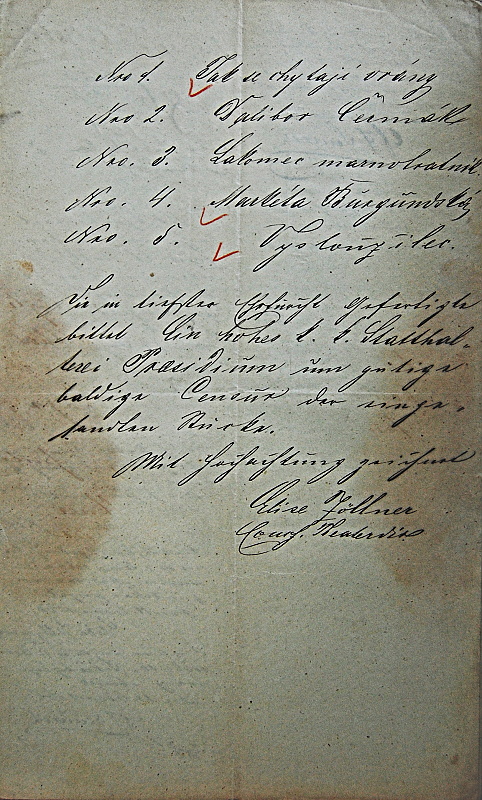 Nro 1. Jak se chytají vrány
Nro 2. Dalibor Čermák
Nro. 3. Lakomec marnotratník.
Nro. 4. Markéta Burgundská
Nro. 5. Vysloužilec.
Die in tiefster Ehrfurcht Gefertigte
bittet Ein hohes k. k. Statthal-
terei Præsidium um gütige
baldige Censur der einge-
sandten Stücke.
Mit Hochachtung zeichnet
Elise Zöllner
Conc. Theaterdir